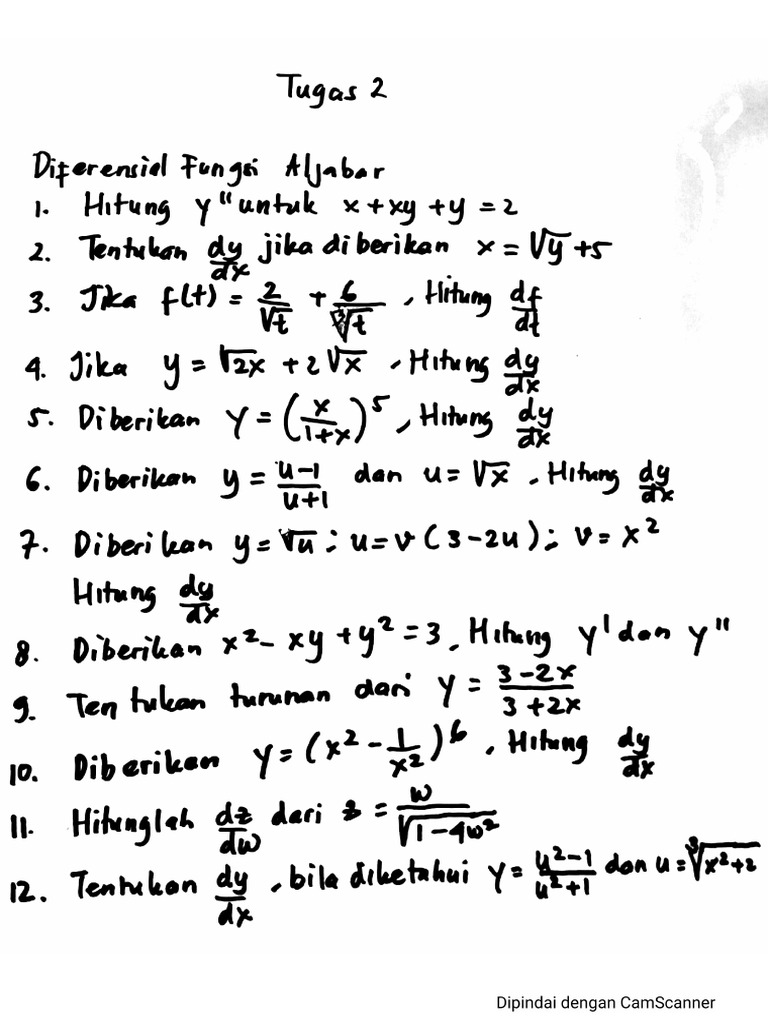 Tugas 2
Diferensial Fungsi Aljabar
1. Hitung y" untuk x + xy + y = 2
2. Tentukan dy/dx jika diberikan x = √y + 5
3. Jika f(t) = 2/√t + 6/∛t, Hitung df/dt
4. Jika y = √2x + 2√x, Hitung dy/dx
5. Diberikan y = (x/(1+x))^5, Hitung dy/dx
6. Diberikan y = (u-1)/(u+1) dan u = √x, Hitung dy/dx
7. Diberikan y = √u ; u = v(3-2u) ; v = x²
Hitung dy/dx
8. Diberikan x² - xy + y² = 3, Hitung y' dan y"
9. Tentukan turunan dari y = (3-2x)/(3+2x)
10. Diberikan y = (x² - 1/x²)^6, Hitung dy/dx
11. Hitunglah dz/dw dari z = w/√(1-4w²)
12. Tentukan dy/dx, bila diketahui y = (u²-1)/(u²+1) dan u = ∛(x²+2)
Dipindai dengan CamScanner